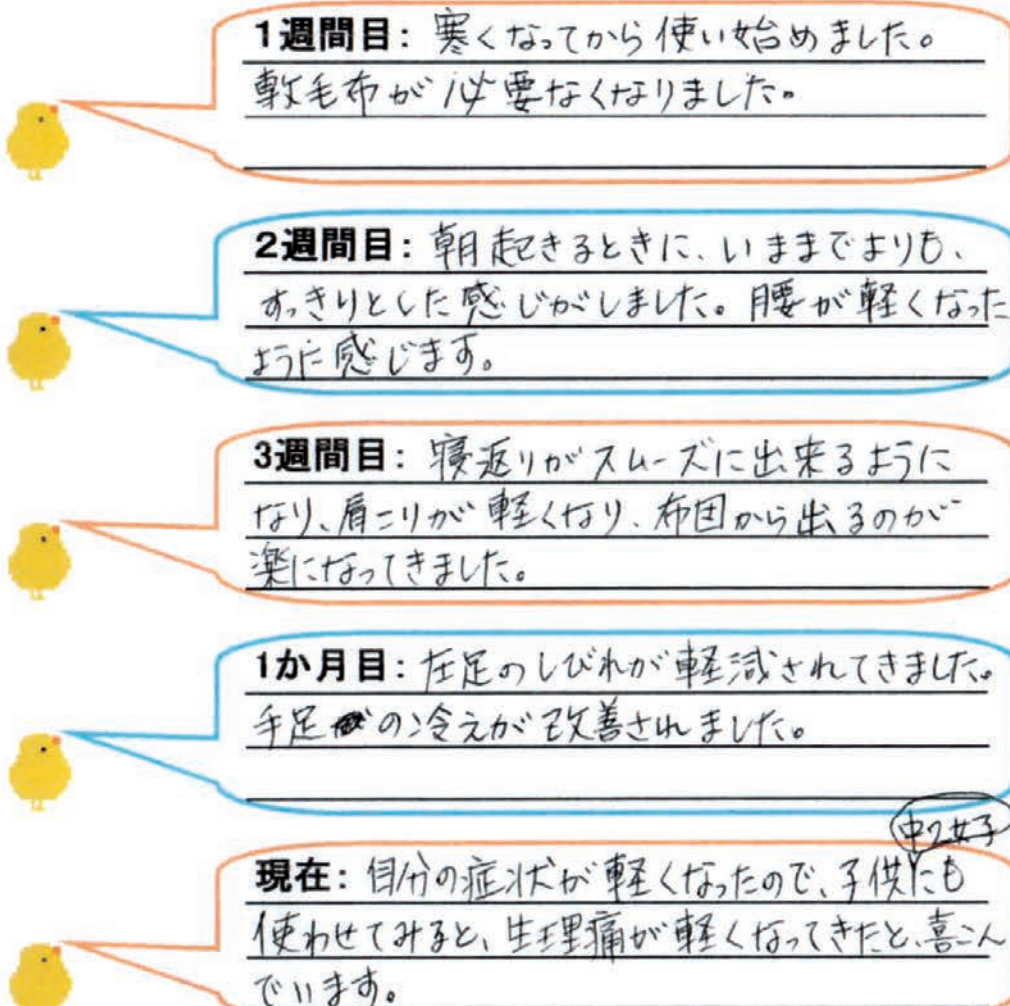 1週間目: 寒くなってから使い始めました。
敷毛布が必要なくなりました。
2週間目: 朝起きるときに、いままでよりも、
すっきりとした感じがしました。腰が軽くなった
ように感じます。
3週間目: 寝返りがスムーズに出来るように
なり、肩こりが軽くなり、布団から出るのが
楽になってきました。
1か月目: 左足のしびれが軽減されてきました。
手足の冷えが改善されました。
中2女子
現在: 自分の症状が軽くなったので、子供にも
使わせてみると、生理痛が軽くなってきたと、喜こん
でいます。